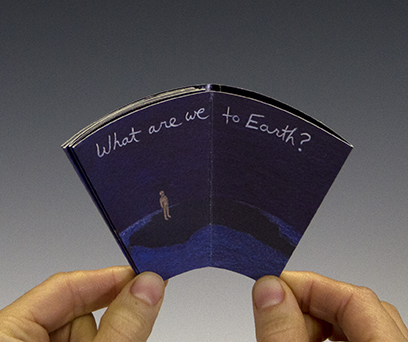 What are we to Earth?